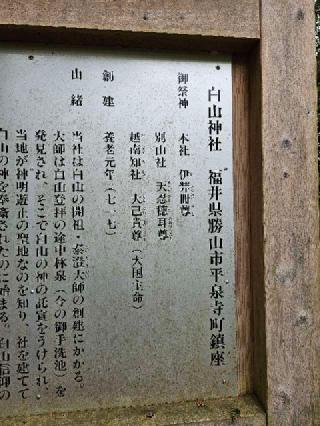 白山神社 福井県勝山市平泉寺町鎮座
御祭神 本社 伊弉冊尊
別山社 天忍穂耳尊
越南知社 大己貴尊(大国主命)
創建 養老元年(七一七)
由緒 当社は白山の開祖・泰澄大師の創建にかかる。
大師は白山登拝の途中林泉(今の御手洗池)を
発見され、そこで白山の神の託宣をうけられ、
当地が神明遊止の聖地なのを知り、社を建てて
白山の神を奉斎されたのに始まる。白山信仰の